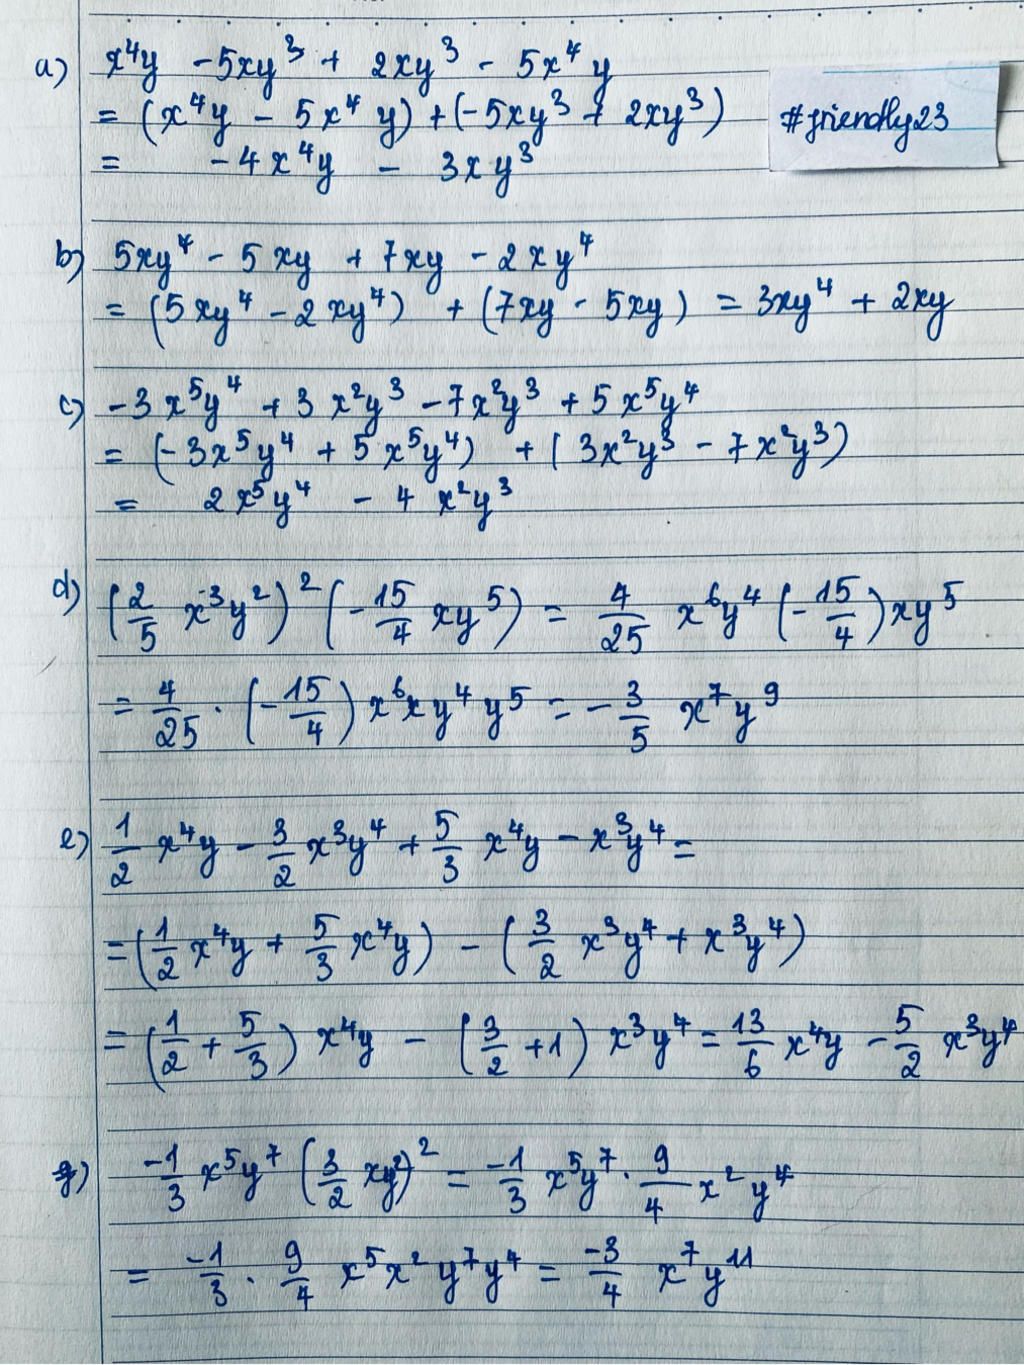 a) x⁴y - 5xy³ + 2xy³ - 5x⁴y
= (x⁴y - 5x⁴y) + (-5xy³ + 2xy³)
= -4x⁴y - 3xy³
#friendly23
b) 5xy⁴ - 5xy + 7xy - 2xy⁴
= (5xy⁴ - 2xy⁴) + (7xy - 5xy) = 3xy⁴ + 2xy
c) -3x⁵y⁴ + 3x²y³ - 7x²y³ + 5x⁵y⁴
= (-3x⁵y⁴ + 5x⁵y⁴) + (3x²y³ - 7x²y³)
= 2x⁵y⁴ - 4x²y³
d) (2/5 x³y²)² (-15/4 xy⁵) = 4/25 x⁶y⁴ (-15/4) xy⁵
= 4/25 · (-15/4) x⁶xy⁴y⁵ = -3/5 x⁷y⁹
e) 1/2 x⁴y - 3/2 x³y⁴ + 5/3 x⁴y - x³y⁴ =
= (1/2 x⁴y + 5/3 x⁴y) - (3/2 x³y⁴ + x³y⁴)
= (1/2 + 5/3) x⁴y - (3/2 + 1) x³y⁴ = 13/6 x⁴y - 5/2 x³y⁴
g) -1/3 x⁵y⁷ (3/2 xy²)² = -1/3 x⁵y⁷ · 9/4 x²y⁴
= -1/3 · 9/4 x⁵x²y⁷y⁴ = -3/4 x⁷y¹¹